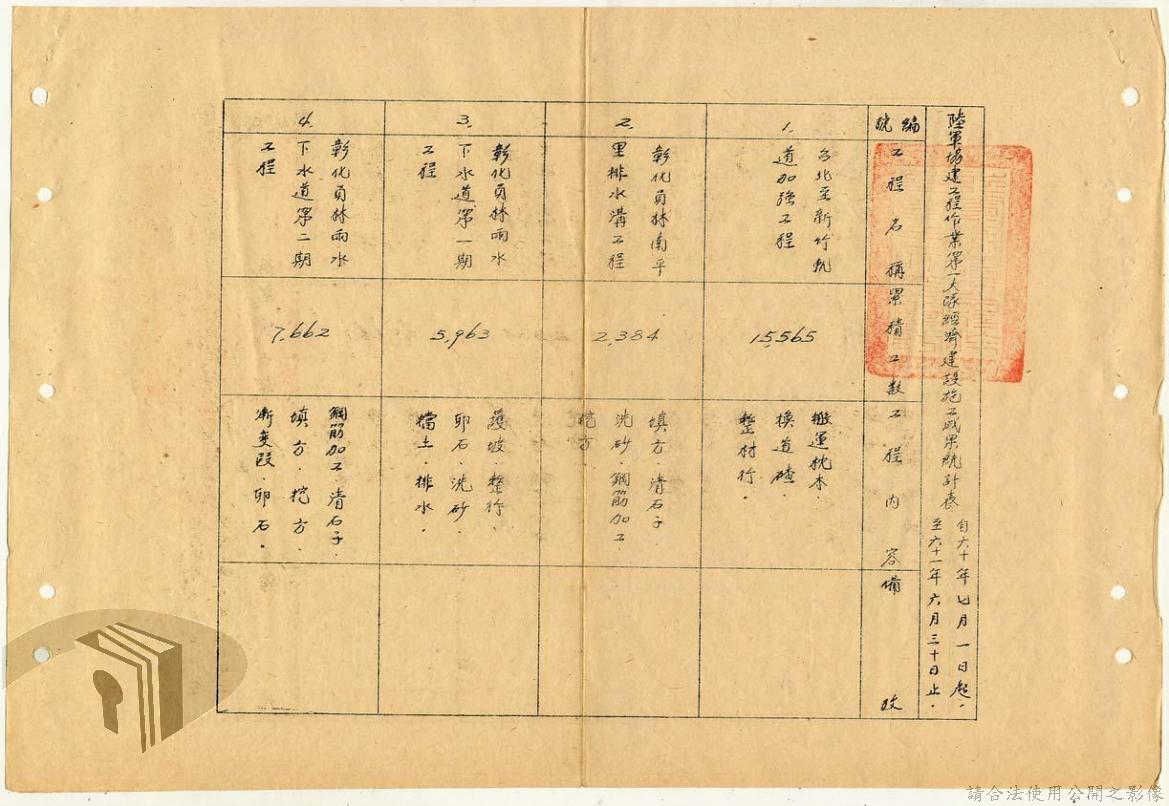 陸軍協建工程作業第一大隊經濟建設施工成果統計表
自六十年七月一日起.
至六十一年六月三十日止.
編號
工程名稱
累積工數
工程內容
備攷
1.
台北至新竹軌
道加強工程
15,565
搬運枕木.
換道碴.
整材行.
2.
彰化員林南平
里排水溝工程
2,384
填方.清石子.
洗砂.鋼筋加工
挖方
3.
彰化員林雨水
下水道第一期
工程
5,963
護坡.整行.
卵石.洗砂.
擋土.排水.
4.
彰化員林雨水
下水道第二期
工程
7,662
鋼筋加工.清石子.
填方.挖方.
漸變段.卵石.
請合法使用公開之影像